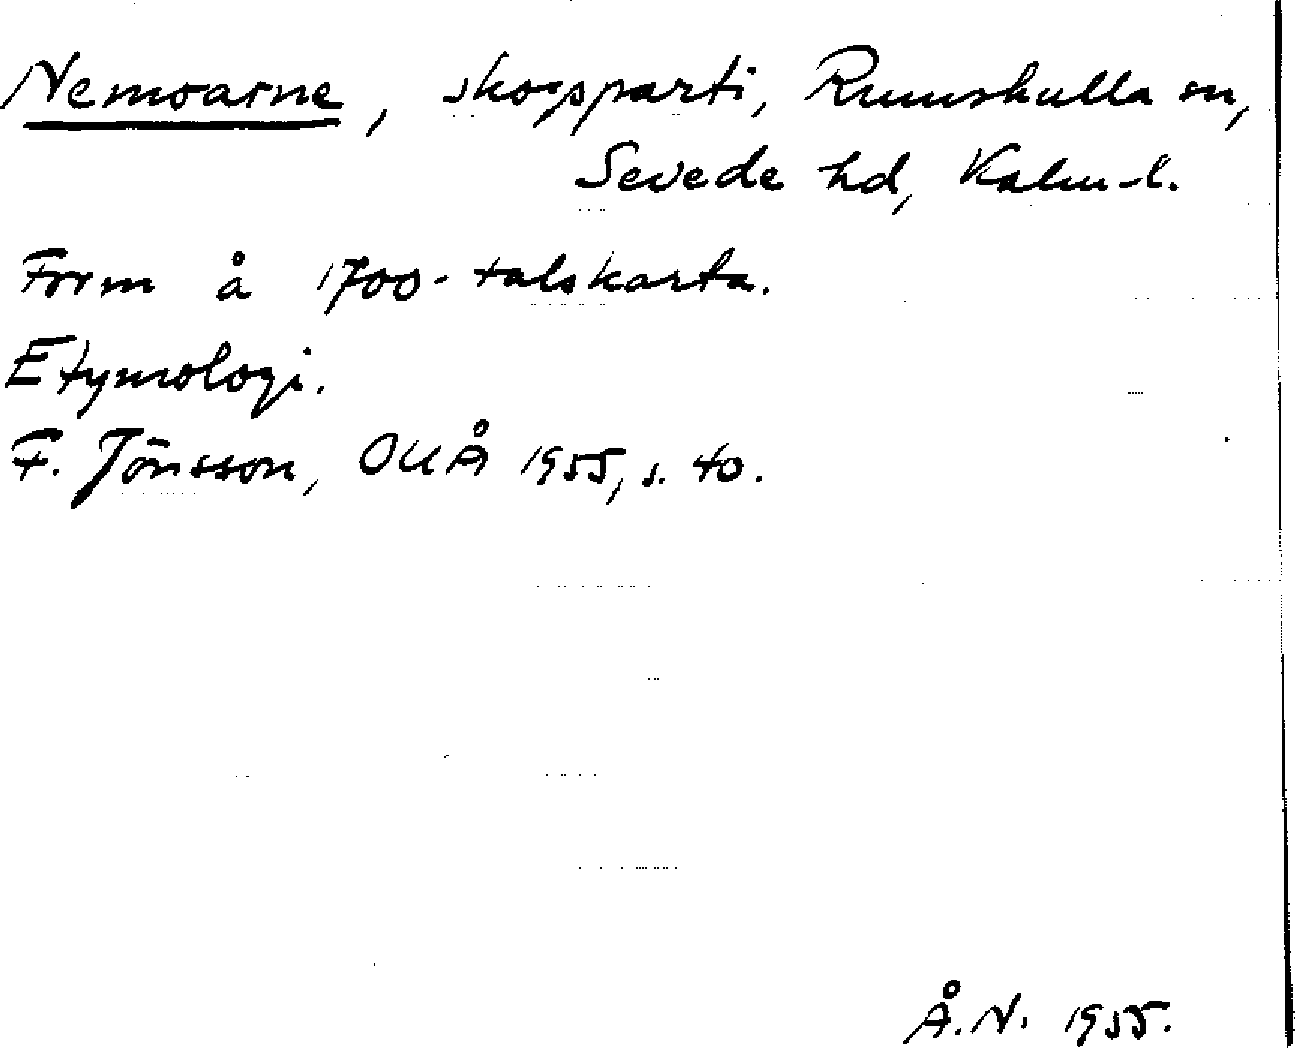 Nemoarne, skogsparti, Rumskulla sn,
Sevede hd, Kalm. l.
Form å 1700-talskarta.
Etymologi.
F. Jönsson, OUÅ 1955, s. 40.
Å.N. 1955.